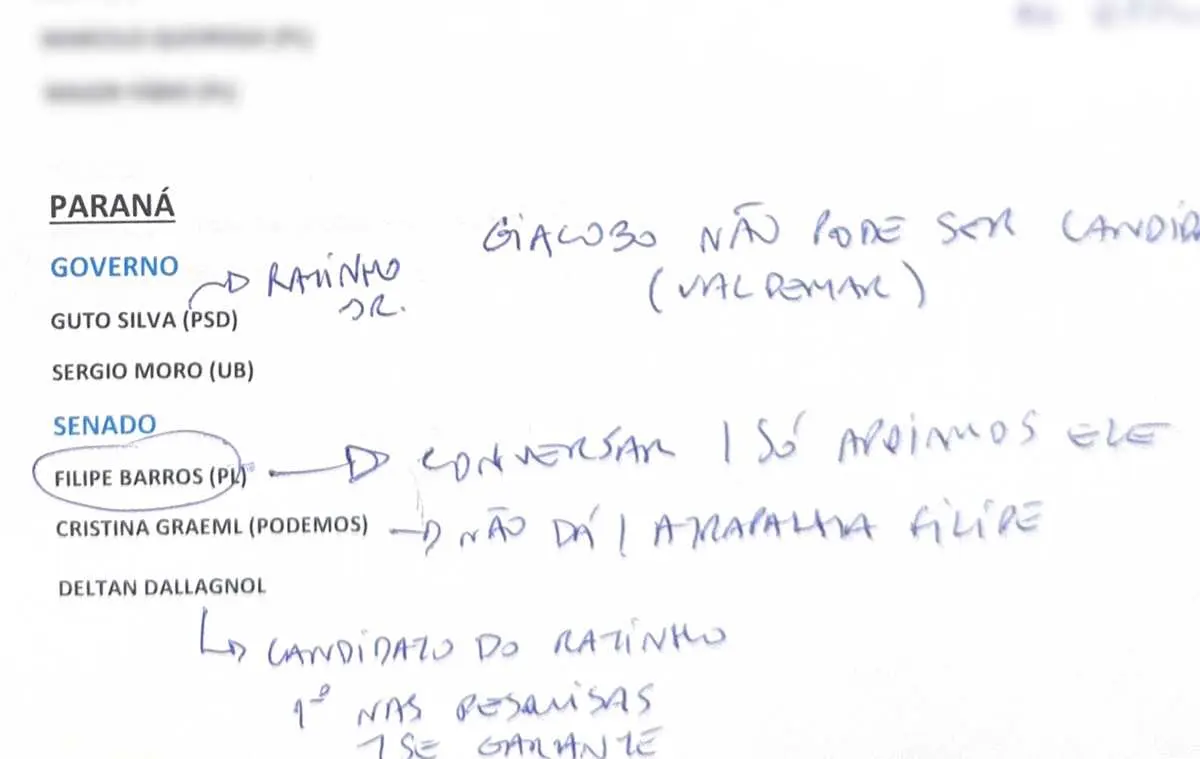 PARANÁ
GIACOBO NÃO PODE SER CANDIDA
(VALDEMAR)
GOVERNO
RATINHO
JR.
GUTO SILVA (PSD)
SERGIO MORO (UB)
SENADO
FILIPE BARROS (PL) CONVERSAR / SÓ APOIAMOS ELE
CRISTINA GRAEML (PODEMOS) NÃO DÁ / ATRAPALHA FILIPE
DELTAN DALLAGNOL
CANDIDATO DO RATINHO
1º NAS PESQUISAS
SE GARANTE